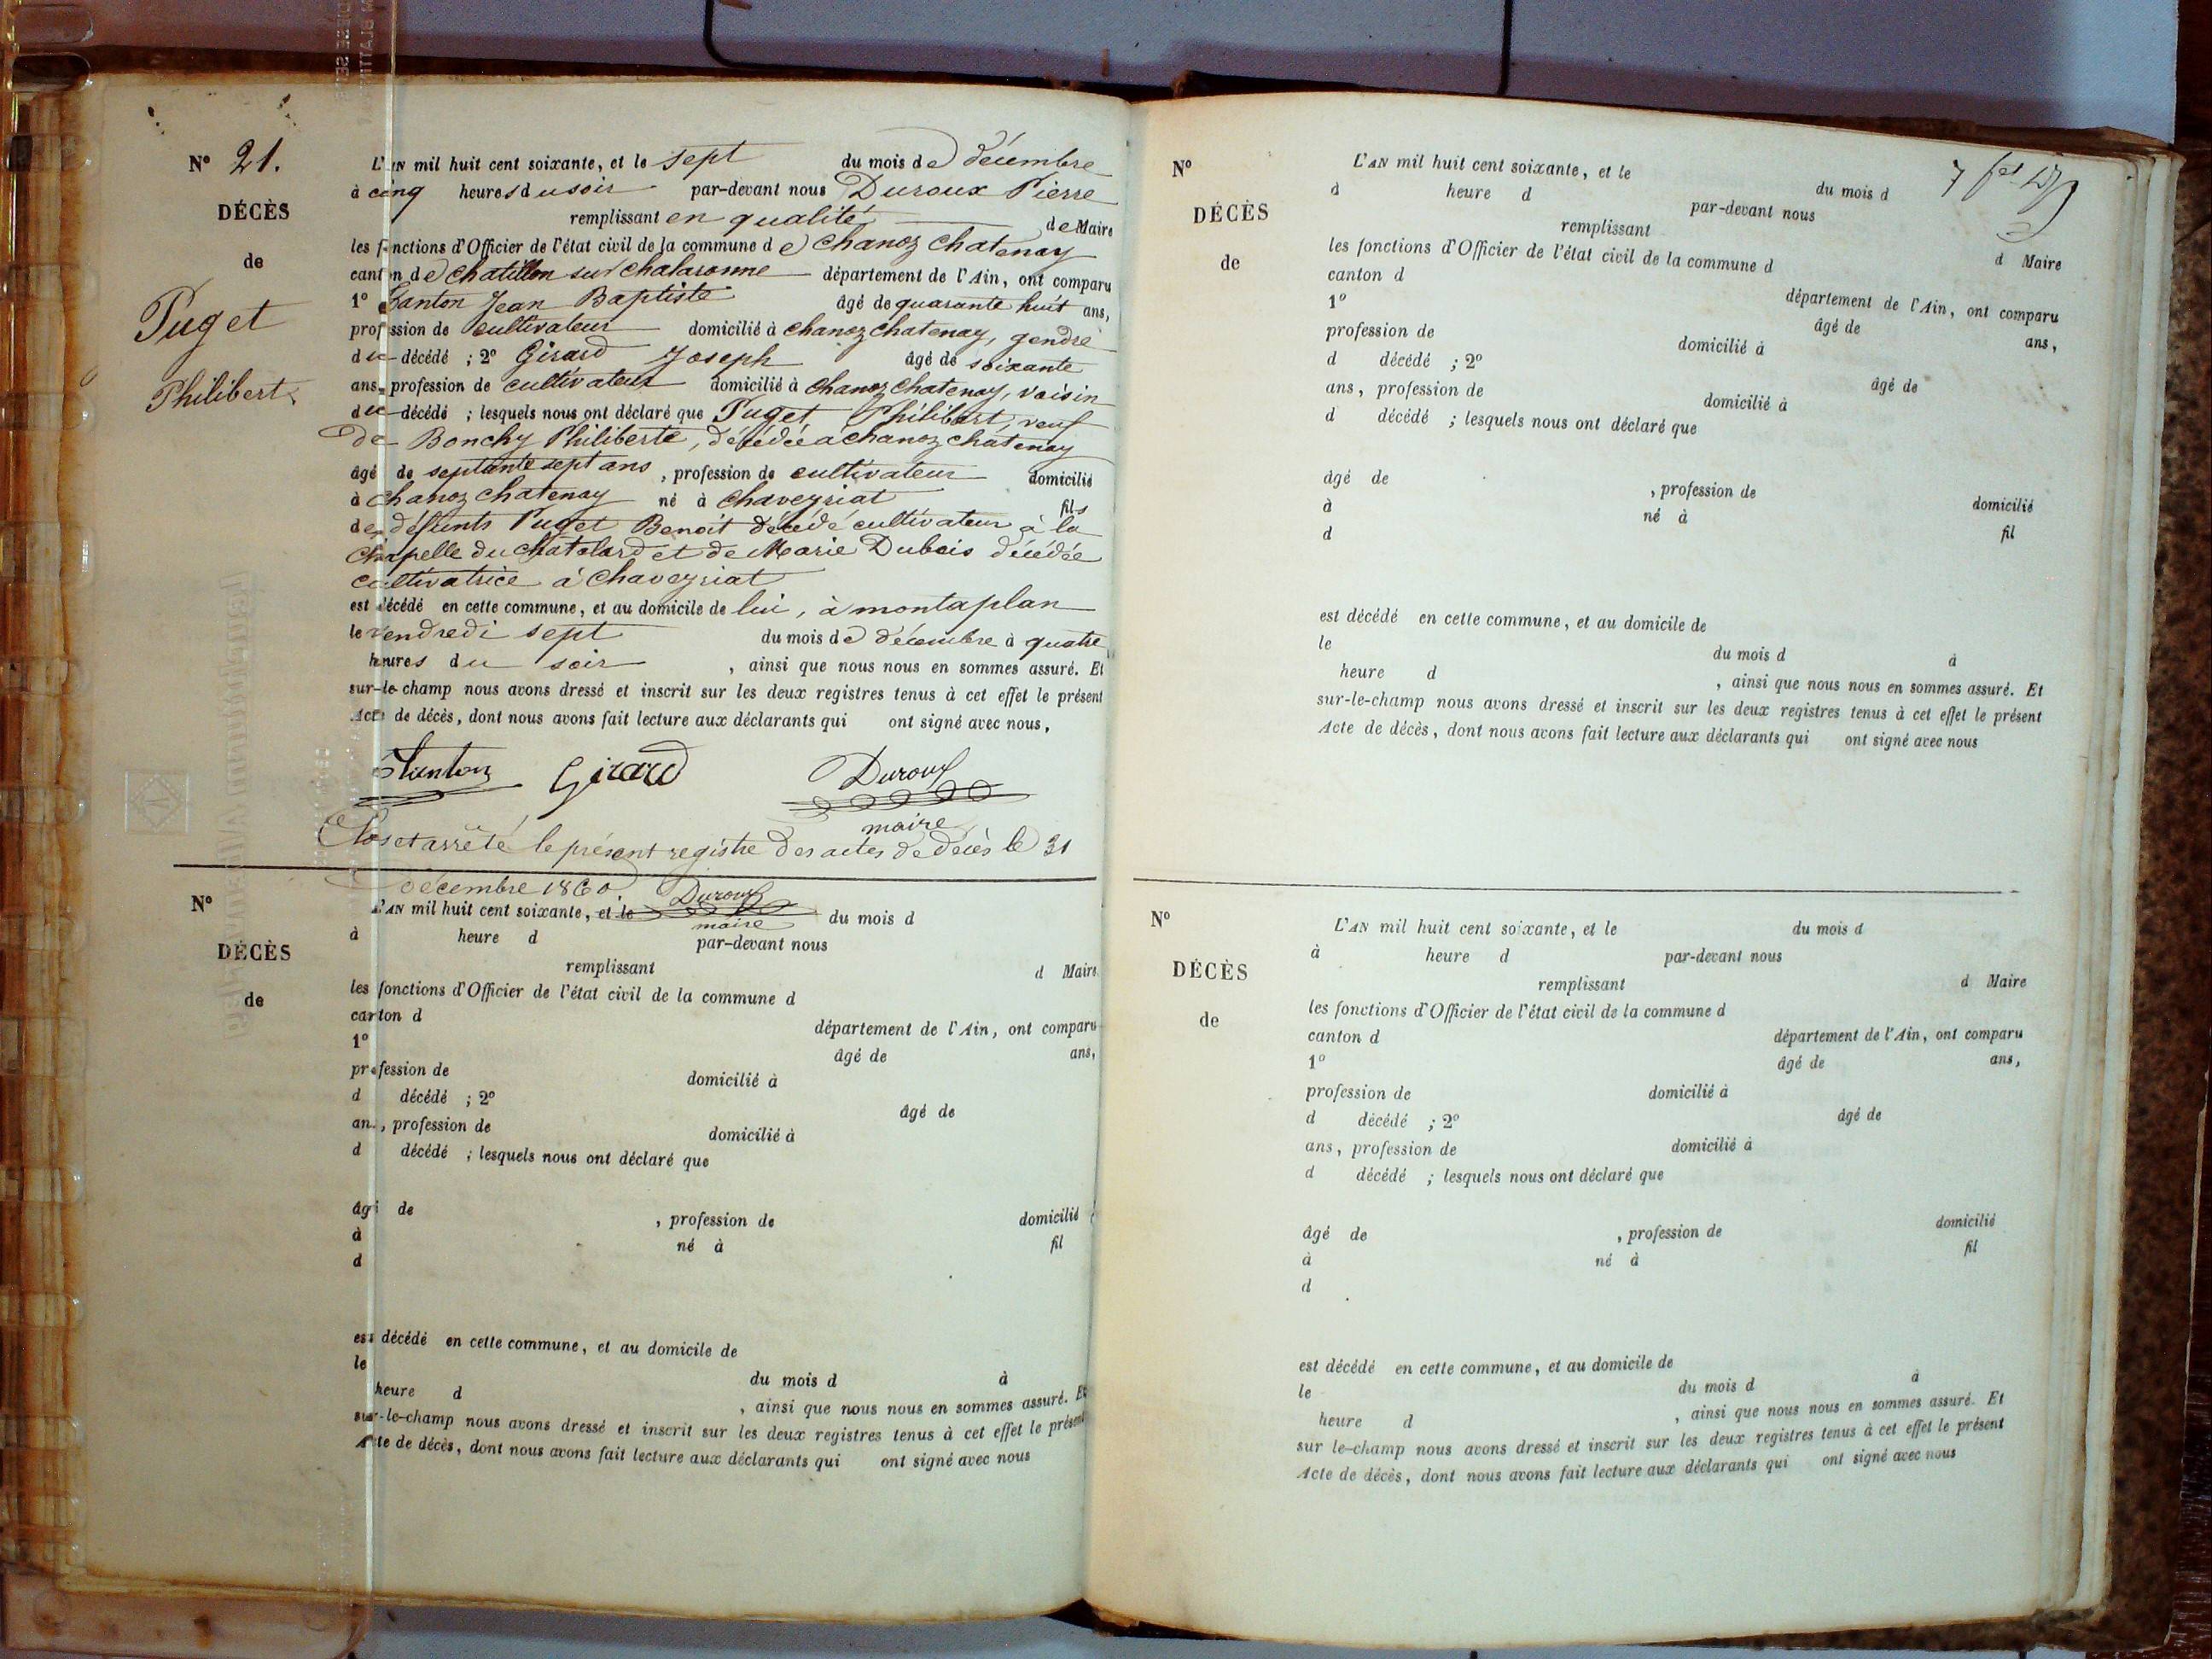 N° 21.
DÉCÈS
de
Puget
Philibert
L'AN mil huit cent soixante, et le sept du mois de décembre
à cinq heures du soir par-devant nous Duroux Pierre
remplissant en qualité de Maire
les fonctions d'Officier de l'état civil de la commune de Chanoz Chatenay
canton de Chatillon sur Chalaronne département de l'Ain, ont comparu
1° Janton Jean Baptiste âgé de quarante huit ans,
profession de cultivateur domicilié à Chanoz Chatenay, gendre
du décédé ; 2° Girard Joseph âgé de soixante
ans, profession de cultivateur domicilié à Chanoz Chatenay, voisin
du décédé ; lesquels nous ont déclaré que Puget, Philibert, veuf
de Bonchy Philiberte, décédée a chanoz châtenay
âgé de septante sept ans, profession de cultivateur domicilié
à Chanoz Chatenay né à Chaveyriat fils
des défunts Puget Benoit décédé cultivateur à la
Chapelle du Châtelard et de Marie Dubois décédée
cultivatrice à Chaveyriat
est décédé en cette commune, et au domicile de lui, à montaplan
le vendredi sept du mois de décembre à quatre
heures du soir , ainsi que nous nous en sommes assuré. Et
sur-le-champ nous avons dressé et inscrit sur les deux registres tenus à cet effet le présent
Acte de décès, dont nous avons fait lecture aux déclarants qui ont signé avec nous,
Janton Girard Duroux
maire
Clos et arrêté le présent registre des actes de décès le 31
décembre 1860 Duroux
maire
N°
DÉCÈS
de
L'AN mil huit cent soixante, et le du mois d
à heure d par-devant nous
remplissant d Maire
les fonctions d'Officier de l'état civil de la commune d
canton d département de l'Ain, ont comparu
1° âgé de ans,
profession de domicilié à
d décédé ; 2° âgé de
ans, profession de domicilié à
d décédé ; lesquels nous ont déclaré que
âgé de , profession de domicilié
à né à fil
d
est décédé en cette commune, et au domicile de
le du mois d à
heure d , ainsi que nous nous en sommes assuré. Et
sur-le-champ nous avons dressé et inscrit sur les deux registres tenus à cet effet le présent
Acte de décès, dont nous avons fait lecture aux déclarants qui ont signé avec nous
N°
DÉCÈS
de
L'AN mil huit cent soixante, et le du mois d
à heure d par-devant nous
remplissant d Maire
les fonctions d'Officier de l'état civil de la commune d
canton d département de l'Ain, ont comparu
1° âgé de ans,
profession de domicilié à
d décédé ; 2° âgé de
ans, profession de domicilié à
d décédé ; lesquels nous ont déclaré que
âgé de , profession de domicilié
à né à fil
d
est décédé en cette commune, et au domicile de
le du mois d à
heure d , ainsi que nous nous en sommes assuré. Et
sur-le-champ nous avons dressé et inscrit sur les deux registres tenus à cet effet le présent
Acte de décès, dont nous avons fait lecture aux déclarants qui ont signé avec nous
N°
DÉCÈS
de
L'AN mil huit cent soixante, et le du mois d
à heure d par-devant nous
remplissant d Maire
les fonctions d'Officier de l'état civil de la commune d
canton d département de l'Ain, ont comparu
1° âgé de ans,
profession de domicilié à
d décédé ; 2° âgé de
ans, profession de domicilié à
d décédé ; lesquels nous ont déclaré que
âgé de , profession de domicilié
à né à fil
d
est décédé en cette commune, et au domicile de
le du mois d à
heure d , ainsi que nous nous en sommes assuré. Et
sur le-champ nous avons dressé et inscrit sur les deux registres tenus à cet effet le présent
Acte de décès, dont nous avons fait lecture aux déclarants qui ont signé avec nous